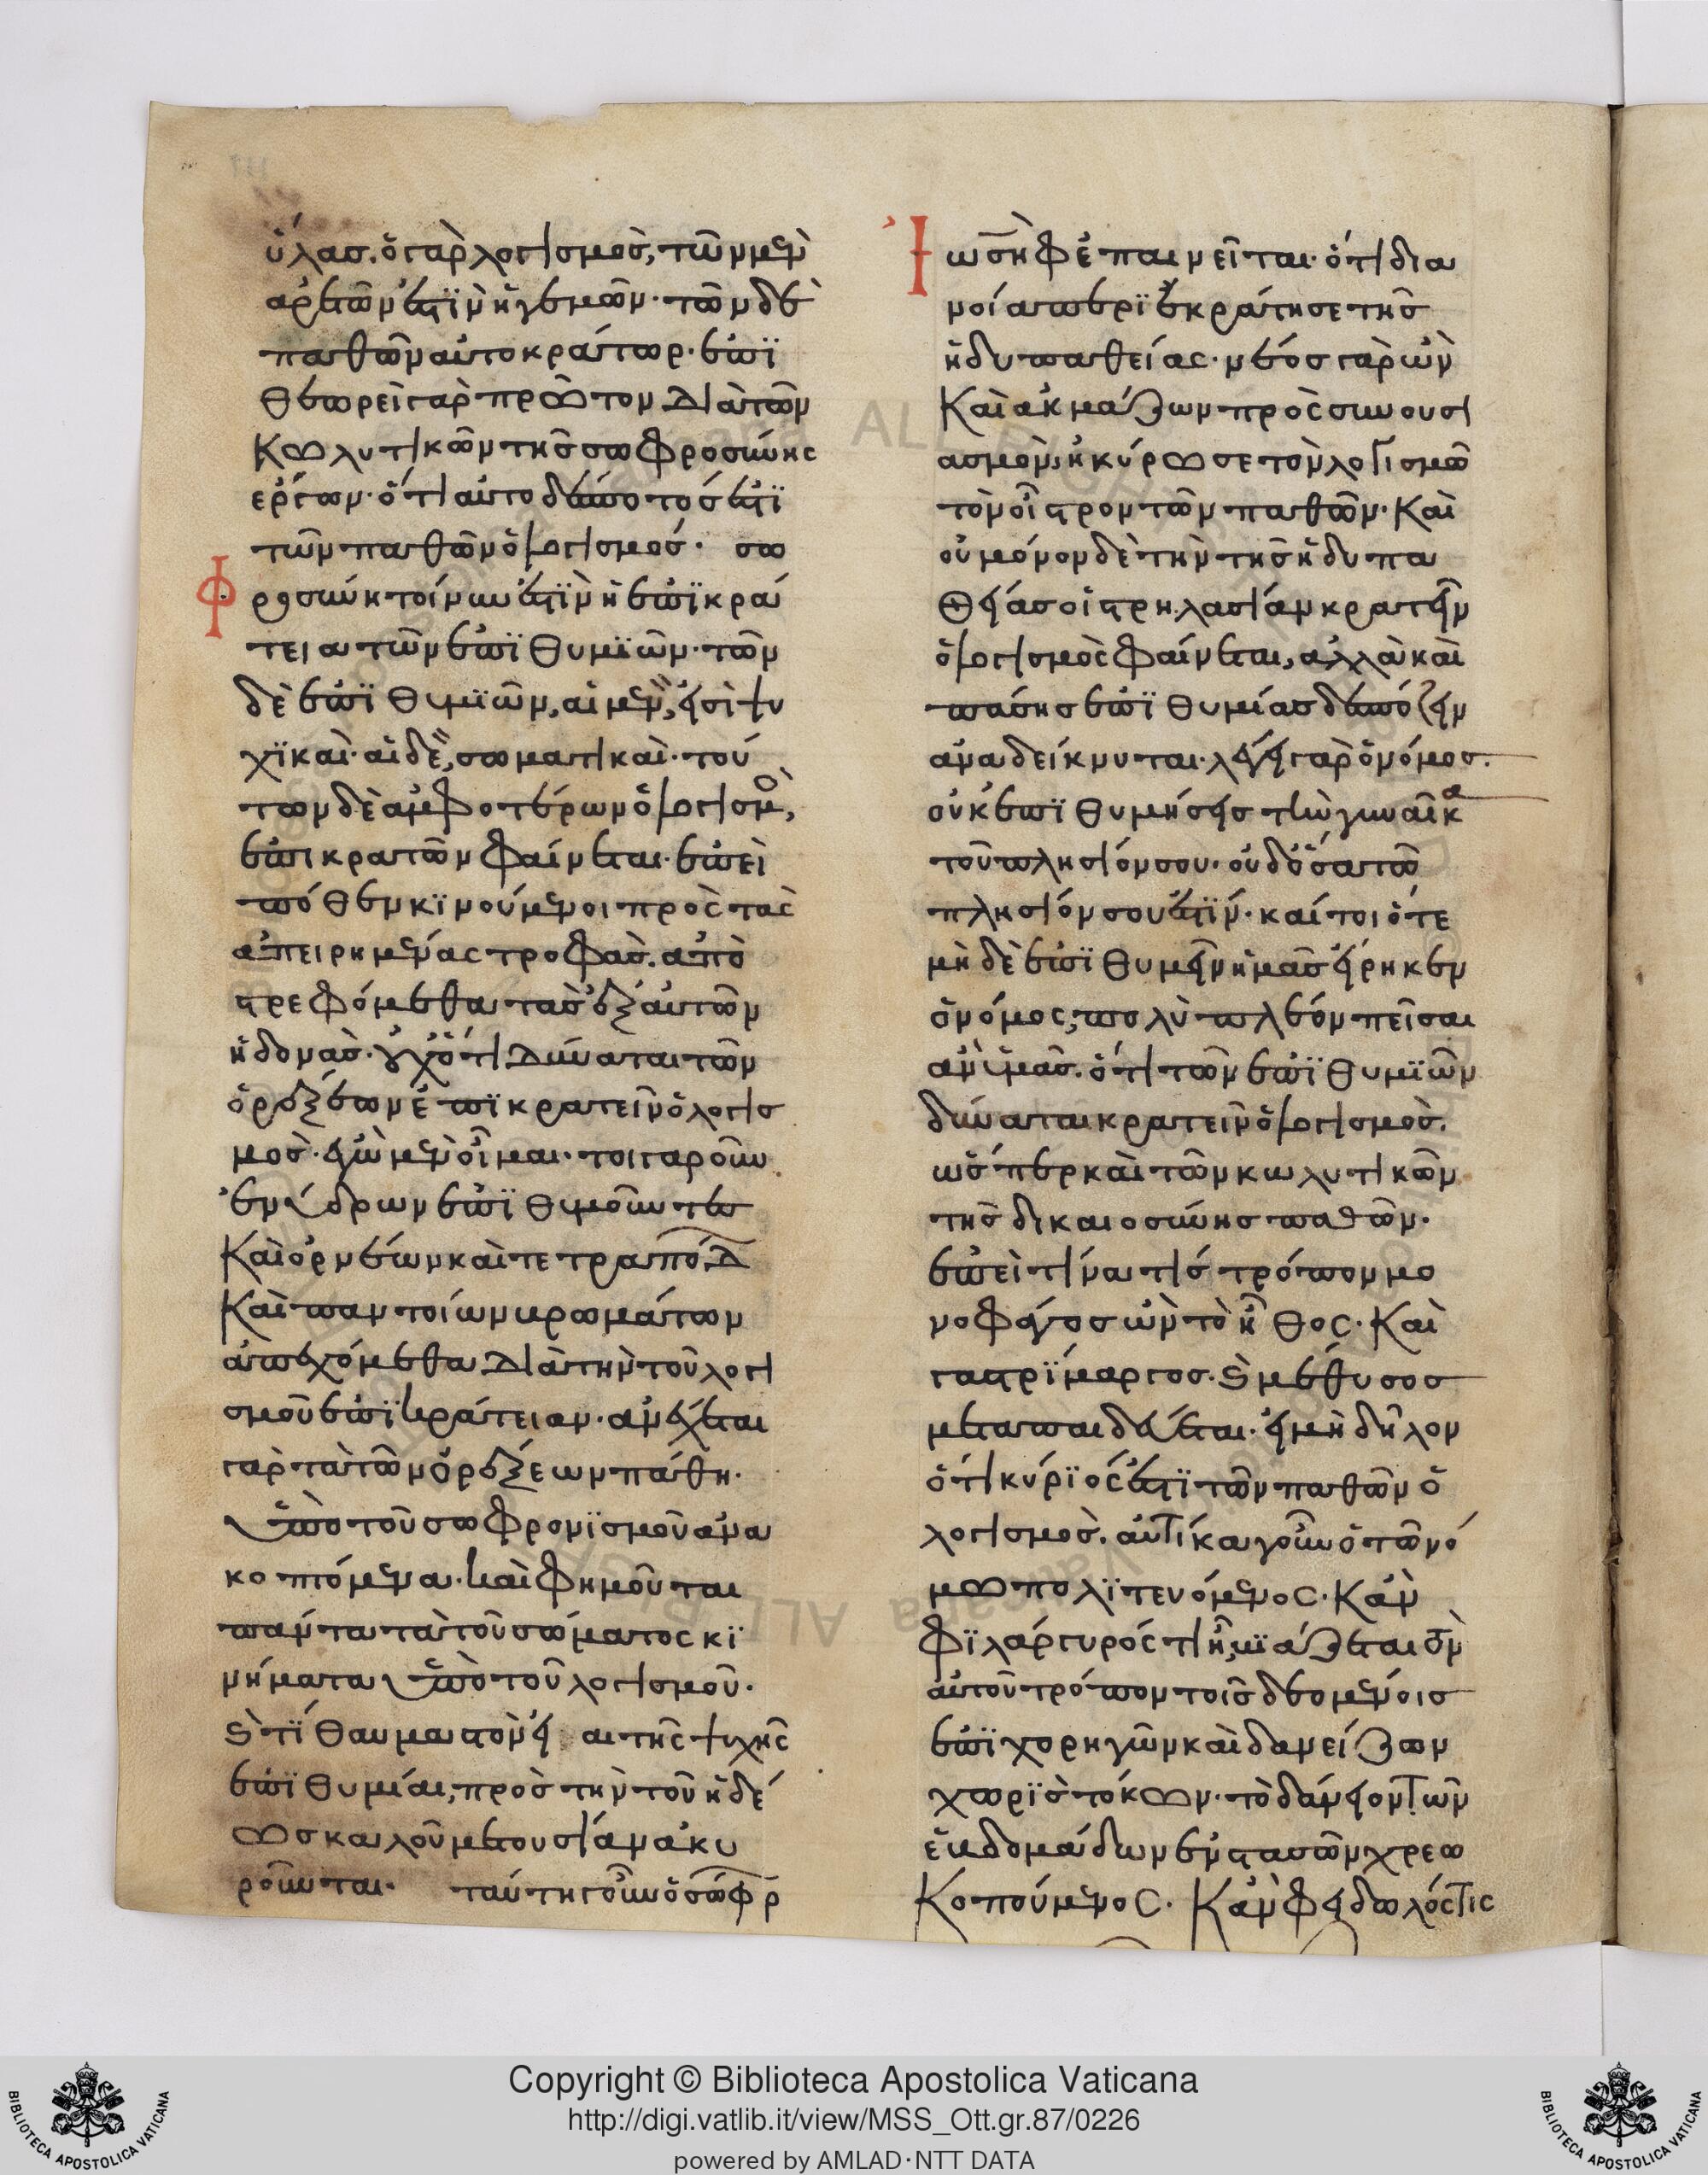 ὕλας. ὁ γὰρ λογισμὸς, τῶν μὲν
ἀρετῶν ἐστὶν ἡγεμὼν· τῶν δὲ
παθῶν αὐτοκράτωρ· ἐπι
θεωρεῖ γὰρ πρῶτον διὰ τῶν
κωλυτικῶν τῆς σωφροσύνης
ἔργων· ὅτι αὐτοδέσποτός ἐστι
τῶν παθῶν ὁ λογισμός· σω
φροσύνη τοίνυν ἐστὶν ἡ ἐπικρά
τεια τῶν ἐπιθυμιῶν· τῶν
δὲ ἐπιθυμιῶν, αἱ μὲν, εἰσὶ ψυ
χικαὶ· αἱ δὲ, σωματικαὶ· τού
των δὲ ἀμφοτέρων ὁ λογισμὸ,
ἐπικρατῶν φαίνεται· ἐπεὶ
πόθεν κινούμενοι πρὸς τὰς
ἀπειρημένας τροφὰς. ἀπο
στρεφόμεθα τὰς ἐξ αὐτῶν
ἡδονὰς· οὐχ ὅτι δύναται τῶν
ὀρέξεων ἐπικρατεῖν ὁ λογισ
μὸς· ἐγὼ μὲν οἶμαι· τοιγαροῦν
ἐνύδρων ἐπιθυμοῦντε
καὶ ὀρνέων καὶ τετραπόδ
καὶ παντοίων βρωμάτων
ἀπεχόμεθα διὰ τὴν τοῦ λογι
σμοῦ ἐπικράτειαν· ἀνέχεται
γὰρ τὰ τῶν ὀρέξεων πάθη·
ὑπὸ τοῦ σωφρονισμοῦ ἀνα
κοπτόμενα· καὶ φημοῦται
πάντα τὰ τοῦ σώματος κι
νήματα ὑπὸ τοῦ λογισμοῦ·
ϛ τί θαυμαστὸν εἰ αἱ τῆς ψυχῆς
ἐπιθυμίαι, πρὸς τὴν τοῦ ἡδέ
ως καλοῦ μετουσίαν ἀκυ
ροῦνται· ταύτῃ γοῦν ὁ σώφρ
Ἰωσὴφ ἐπαινεῖται· ὅτι δια
νοία περιεκράτησε τῆς
ἡδυπαθείας· νέος γὰρ ὢν
καὶ ἀκμάζων πρὸς συνουσι
ασμὸν, ἠκύρωσε τὸν λογισμῶ
τὸν οἶστρον τῶν παθῶν· καὶ
οὐ μόνον δὲ τὴν τῆς ἡδυπα
θείας οἰστρηλασίαν κρατεῖν
ὁ λογισμὸς φαίνεται, ἀλλὰ καὶ
πάσης ἐπιθυμίας δεσπόζειν
ἀναδείκνυται· λέγει γὰρ ὁ νόμος.
οὐκ ἐπιθυμήσεις τὴν γυναῖκα
τοῦ πλησίον σου· οὐδ ὅσα τῶ
πλησίον σου ἐστίν· καίτοι ὅτε
μὴ δὲ ἐπιθυμεῖν ἡμᾶς εἴρηκεν
ὁ νόμος, πολὺ πλέον πεῖσαι
ἂν ὑμᾶς. ὅτι τῶν ἐπιθυμιῶν
δύναται κρατεῖν ὁ λογισμὸς.
ὥσπερ καὶ τῶν κωλυτικῶν
τῆς δικαιοσύνης παθῶν·
ἐπεὶ τίνα τίς τρόπον μο
νοφάγος ὢν τὸ ἦθος· καὶ
γαστρίμαργος. ϛ μέθυσος
μεταπαιδεύεται· εἰ μὴ δῆλον
ὅτι κύριός ἐστι τῶν παθῶν ὁ
λογισμὸς. αὐτίκα γοῦν ὁ τῶ νό
μω πολιτευόμενος· κἂν
φιλάργυρός τις ᾖ, βιάζεται τὸν
αὐτοῦ τρόπον τοῖς δεομένοις
ἐπιχορηγῶν καὶ δανείζων
χωρὶς τόκων· τὸ δάνειον τῶν
ἑβδομάδων ἐνστασῶν χρεω
κοπούμενος· κἂν φειδωλός τις
Copyright © Biblioteca Apostolica Vaticana
http://digi.vatlib.it/view/MSS_Ott.gr.87/0226
powered by AMLAD·NTT DATA
BIBLIOTECA APOSTOLICA VATICANA
BIBLIOTECA APOSTOLICA VATICANA